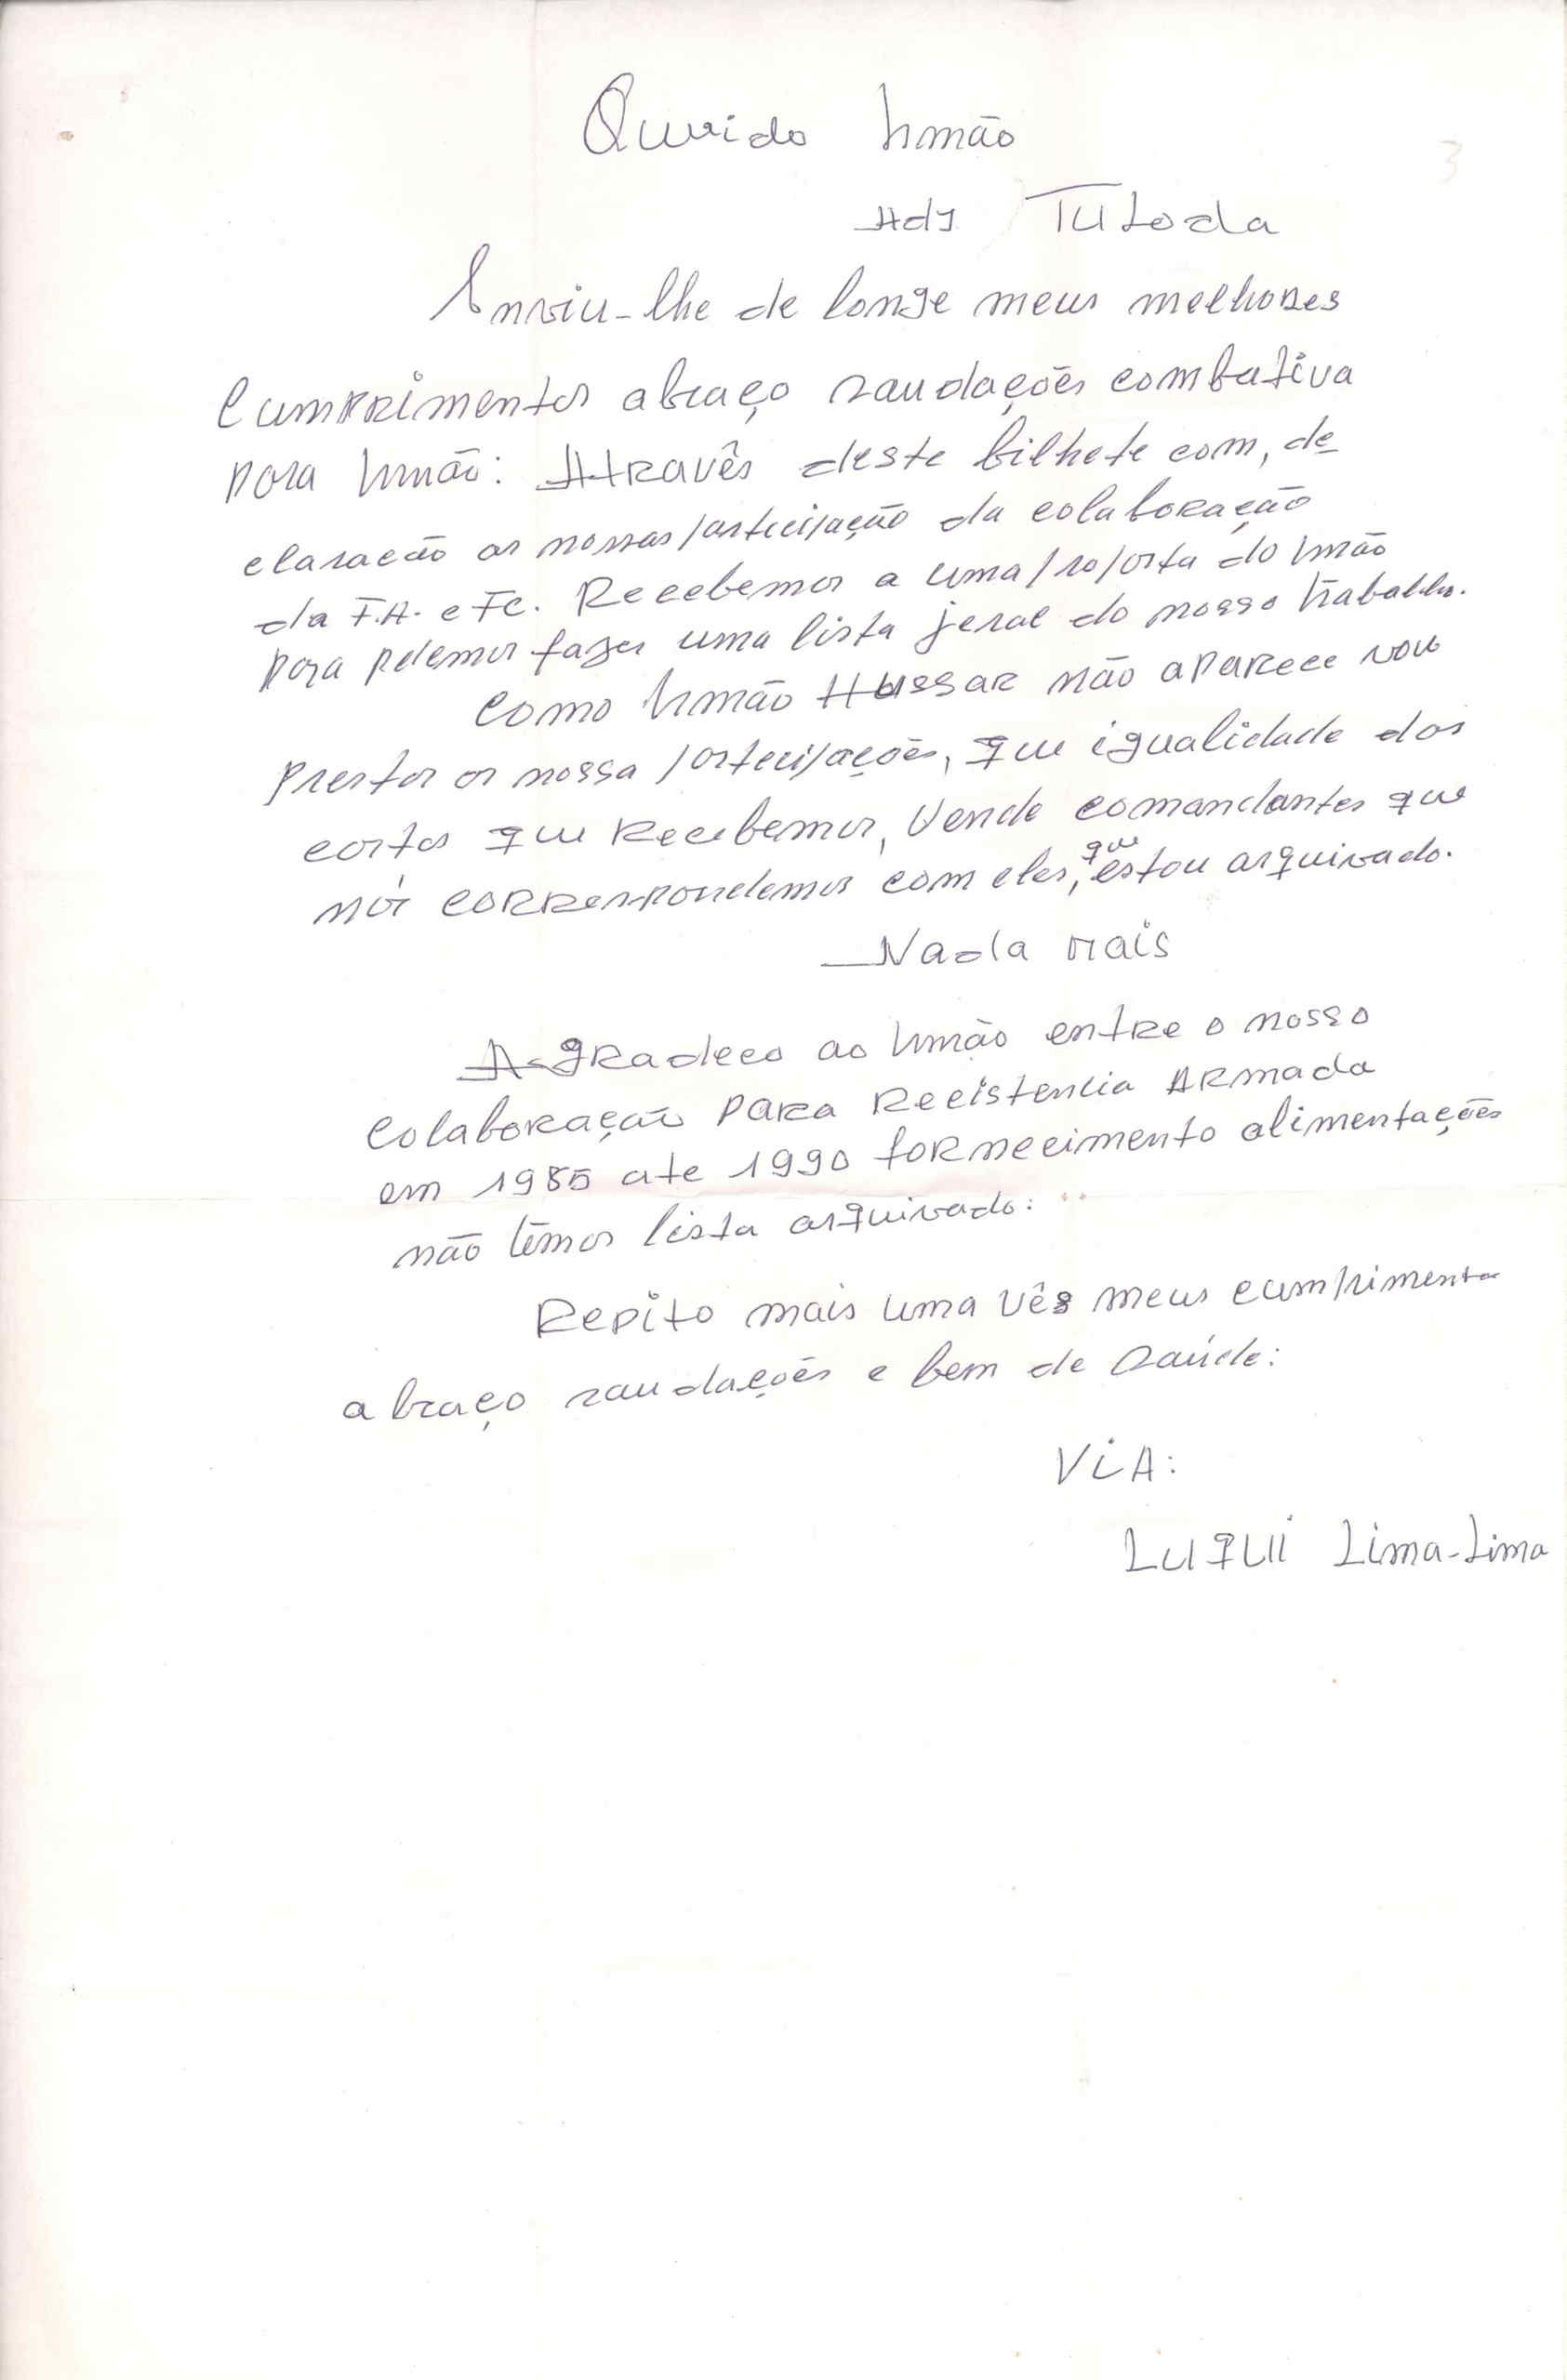 Querido Irmão
Adj Tuloda
Enviu-lhe de longe meus melhores
Cumprimentos abraço saudações combativa
para Irmão: Atravês deste bilhete com, de
claração os nossas participação da colaboração
da F.A. e FC. Recebemos a uma proposta do Irmão
para pdemos fazer uma lista jeral do nosso trabalho.
Como Irmão Hussar não aparece vou
prestar os nossa partecipações, que igualidade dos
cartas que Recebemos, Vende comandantes que
nós correspondemos com eles, que estou arquivado.
Nada mais
Agradeco ao Irmão entre o nosso
Colaboração para Recistencia Armada
em 1985 ate 1990 fornecimento alimentações
não têmos lista arquivado:
Repito mais uma vês meus cumprimentos
abraço saudações e bem de Saúde:
ViA:
LUQUI Lima-Lima
3